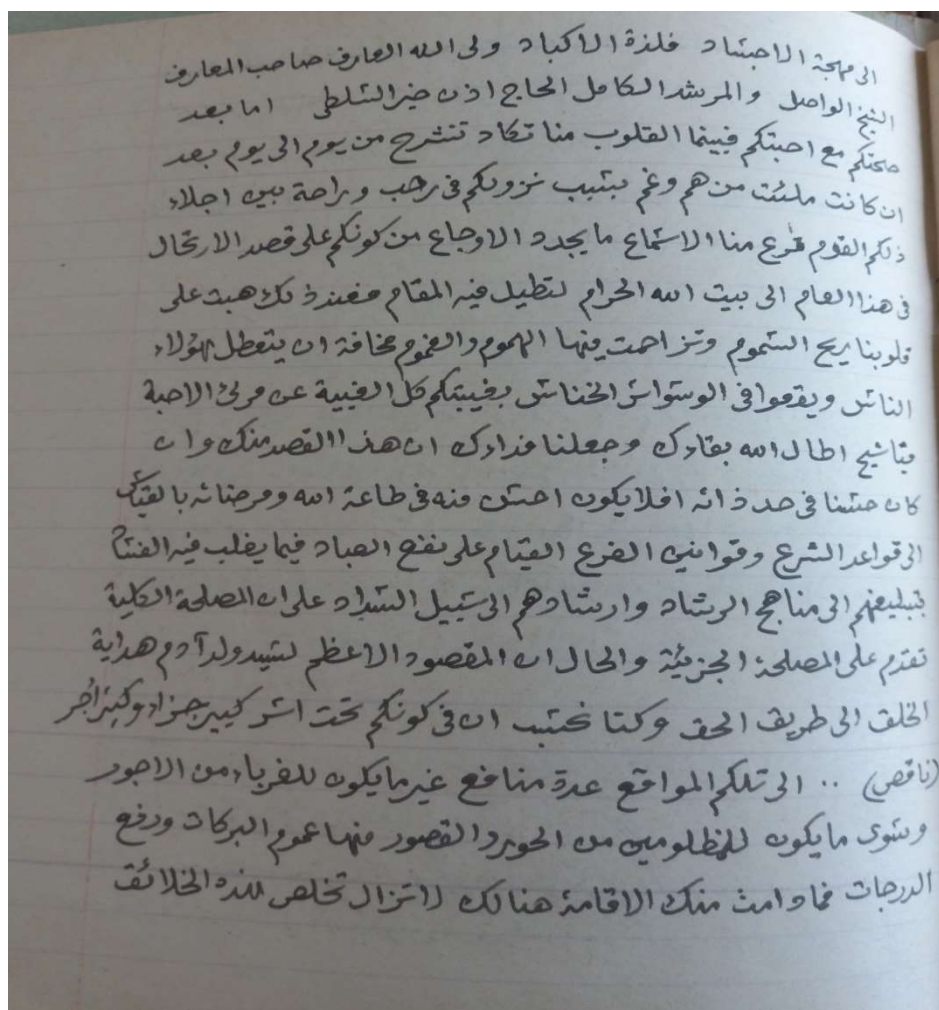 الى مهجة الاجساد فلذة الاكباد ولى الله العارف صاحب المعارف
الشيخ الواصل والمرشد الكامل الحاج اذن خير السلطى اما بعد
صحتكم مع احبتكم فبينما القلوب منا تكاد تنشرح من يوم الى يوم بعد
ان كانت ملئت من هم وغم بسبب نزولكم فى رحب وراحة بين اجلاء
ذلكم القوم قرع منا الاسماع ما يجدد الاوجاع من كونكم على قصد الارتحال
فى هذا العام الى بيت الله الحرام لتطيل فيه المقام فعند ذلك هبت على
قلوبنا ريح السموم وتزاحمت فيها الهموم والغموم مخافة ان يتعطل هؤلاء
الناس ويقعوا فى الوسواس الخناس بغيبتكم كل الغيبة عن مرئ الاحبة
فيا شيخ اطال الله بقاءك وجعلنا فداءك ان هذا القصد منك وان
كان حسنا فى حد ذاته افلا يكون احسن منه فى طاعة الله ومرضاته بالقياس
الى قواعد الشرع وقوانين الفرع القيام على نفع العباد فيما يغلب فيه الفساد
بتبليغهم الى مناهج الرشاد وارشادهم الى سبيل السداد على ان المصلحة الكلية
تقدم على المصلحة الجزيئة والحال ان المقصود الاعظم لسيد ولد آدم هداية
الخلق الى طريق الحق وكنا نحسب ان فى كونكم تحت اسر كبير جزاء وكثير اجر
(ناقص) .. الى تلكم المواقع عدة منافع غير ما يكون للغرباء من الاجور
وسوى ما يكون للمظلومين من الحور والقصور منها عموم البركات ورفع
الدرجات فما دامت منك الاقامة هنالك لا تزال تخلص لهذه الخلائق